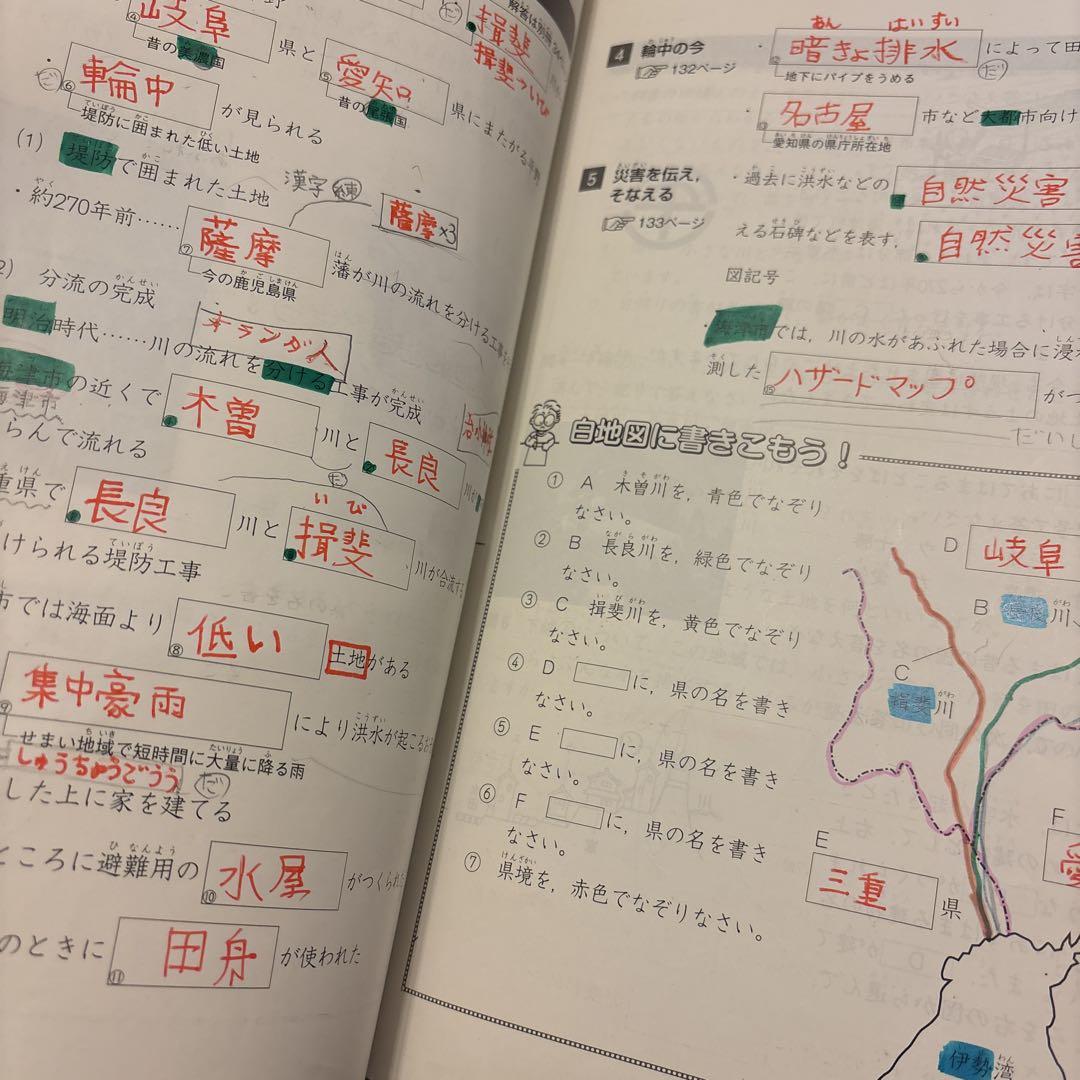 岐阜
昔の美濃国
県と
愛知
昔の尾張国
県にまたがる平野
揖斐
揖斐
輪中
堤防に囲まれた低い土地
が見られる
(1) 堤防で囲まれた土地
漢字 練
薩摩×3
・約270年前……
薩摩
今の鹿児島県
藩が川の流れを分ける工事
2) 分流の完成
オランダ人
明治時代……川の流れを分ける工事が完成
海津市の近くで
海津市
木曽
川と
長良
川が
らんで流れる
重県で
長良
川と
いび
揖斐
川が合流する
けられる堤防工事
市では海面より
低い
土地がある
集中豪雨
により洪水が起こる
せまい地域で短時間に大量に降る雨
しゅうちゅうごうう
した上に家を建てる
ところに避難用の
水屋
がつくられ
のときに
田舟
が使われた
4 輪中の今
132ページ
あん はいすい
・暗きょ排水
によって田
地下にパイプをうめる
・名古屋
市など大都市向け
愛知県の県庁所在地
5 災害を伝え,
そなえる
133ページ
・過去に洪水などの
自然災害
える石碑などを表す,
自然災害
図記号
・海津市では,川の水があふれた場合に浸
測した
ハザードマップ
がつ
白地図に書きこもう!
① A 木曽川を,青色でなぞり
なさい。
② B 長良川を,緑色でなぞり
なさい。
③ C 揖斐川を,黄色でなぞり
なさい。
④ D に,県の名を書き
なさい。
⑤ E に,県の名を書き
なさい。
⑥ F に,県の名を書き
なさい。
⑦ 県境を,赤色でなぞりなさい。
D
岐阜
B
長良川
C
揖斐川
E
三重
県
F
愛
伊勢湾